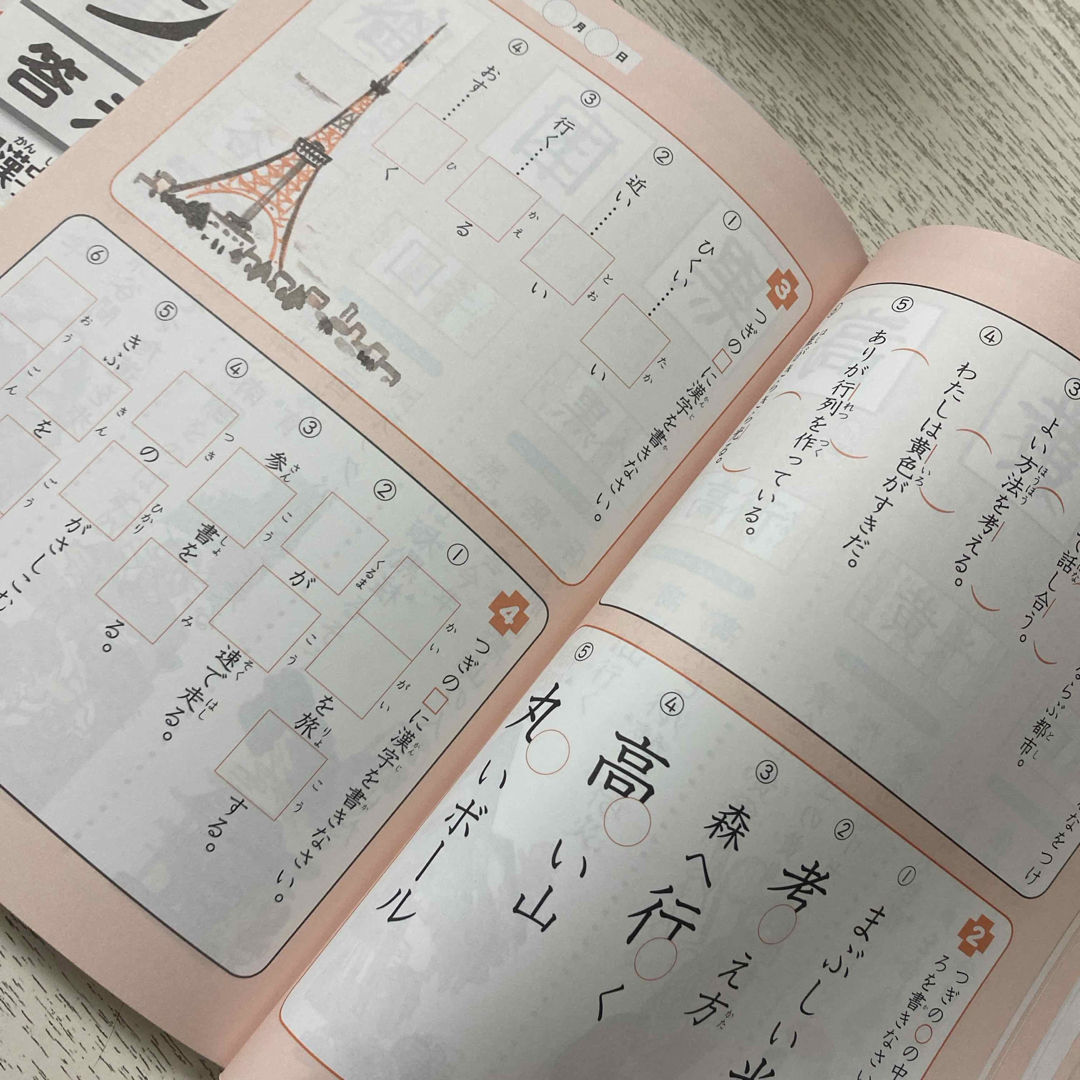 ③
よい方法を考える。
ほうほう
④
わたしは黄色がすきだ。
いろ
⑤
ありが行列を作っている。
れつ
つく
話し合う。
はな
ならぶ都市。
とし
なをつけ
2
つぎの○の中
ろを書きなさい
か
①
まぶしい
②
考え方
かた
③
森へ行く
④
高い山
⑤
丸いボール
月 日
3
つぎの□に漢字を書きなさい。
かんじ
か
①
ひくい……□い
たか
②
近い……□い
とお
③
行く……□る
かえ
④
おす……□く
ひ
4
つぎの□に漢字を書きなさい。
かんじ
か
①
□□を旅□する。
かい がい りょ こう
②
□が□速で走る。
くるま こう そく はし
③
参□書を□る。
さん こう しょ み
④
□の□がさしこむ
つき ひかり
⑤
きふ□
きん
⑥
□□を□
おう にん こう
答
漢
かん